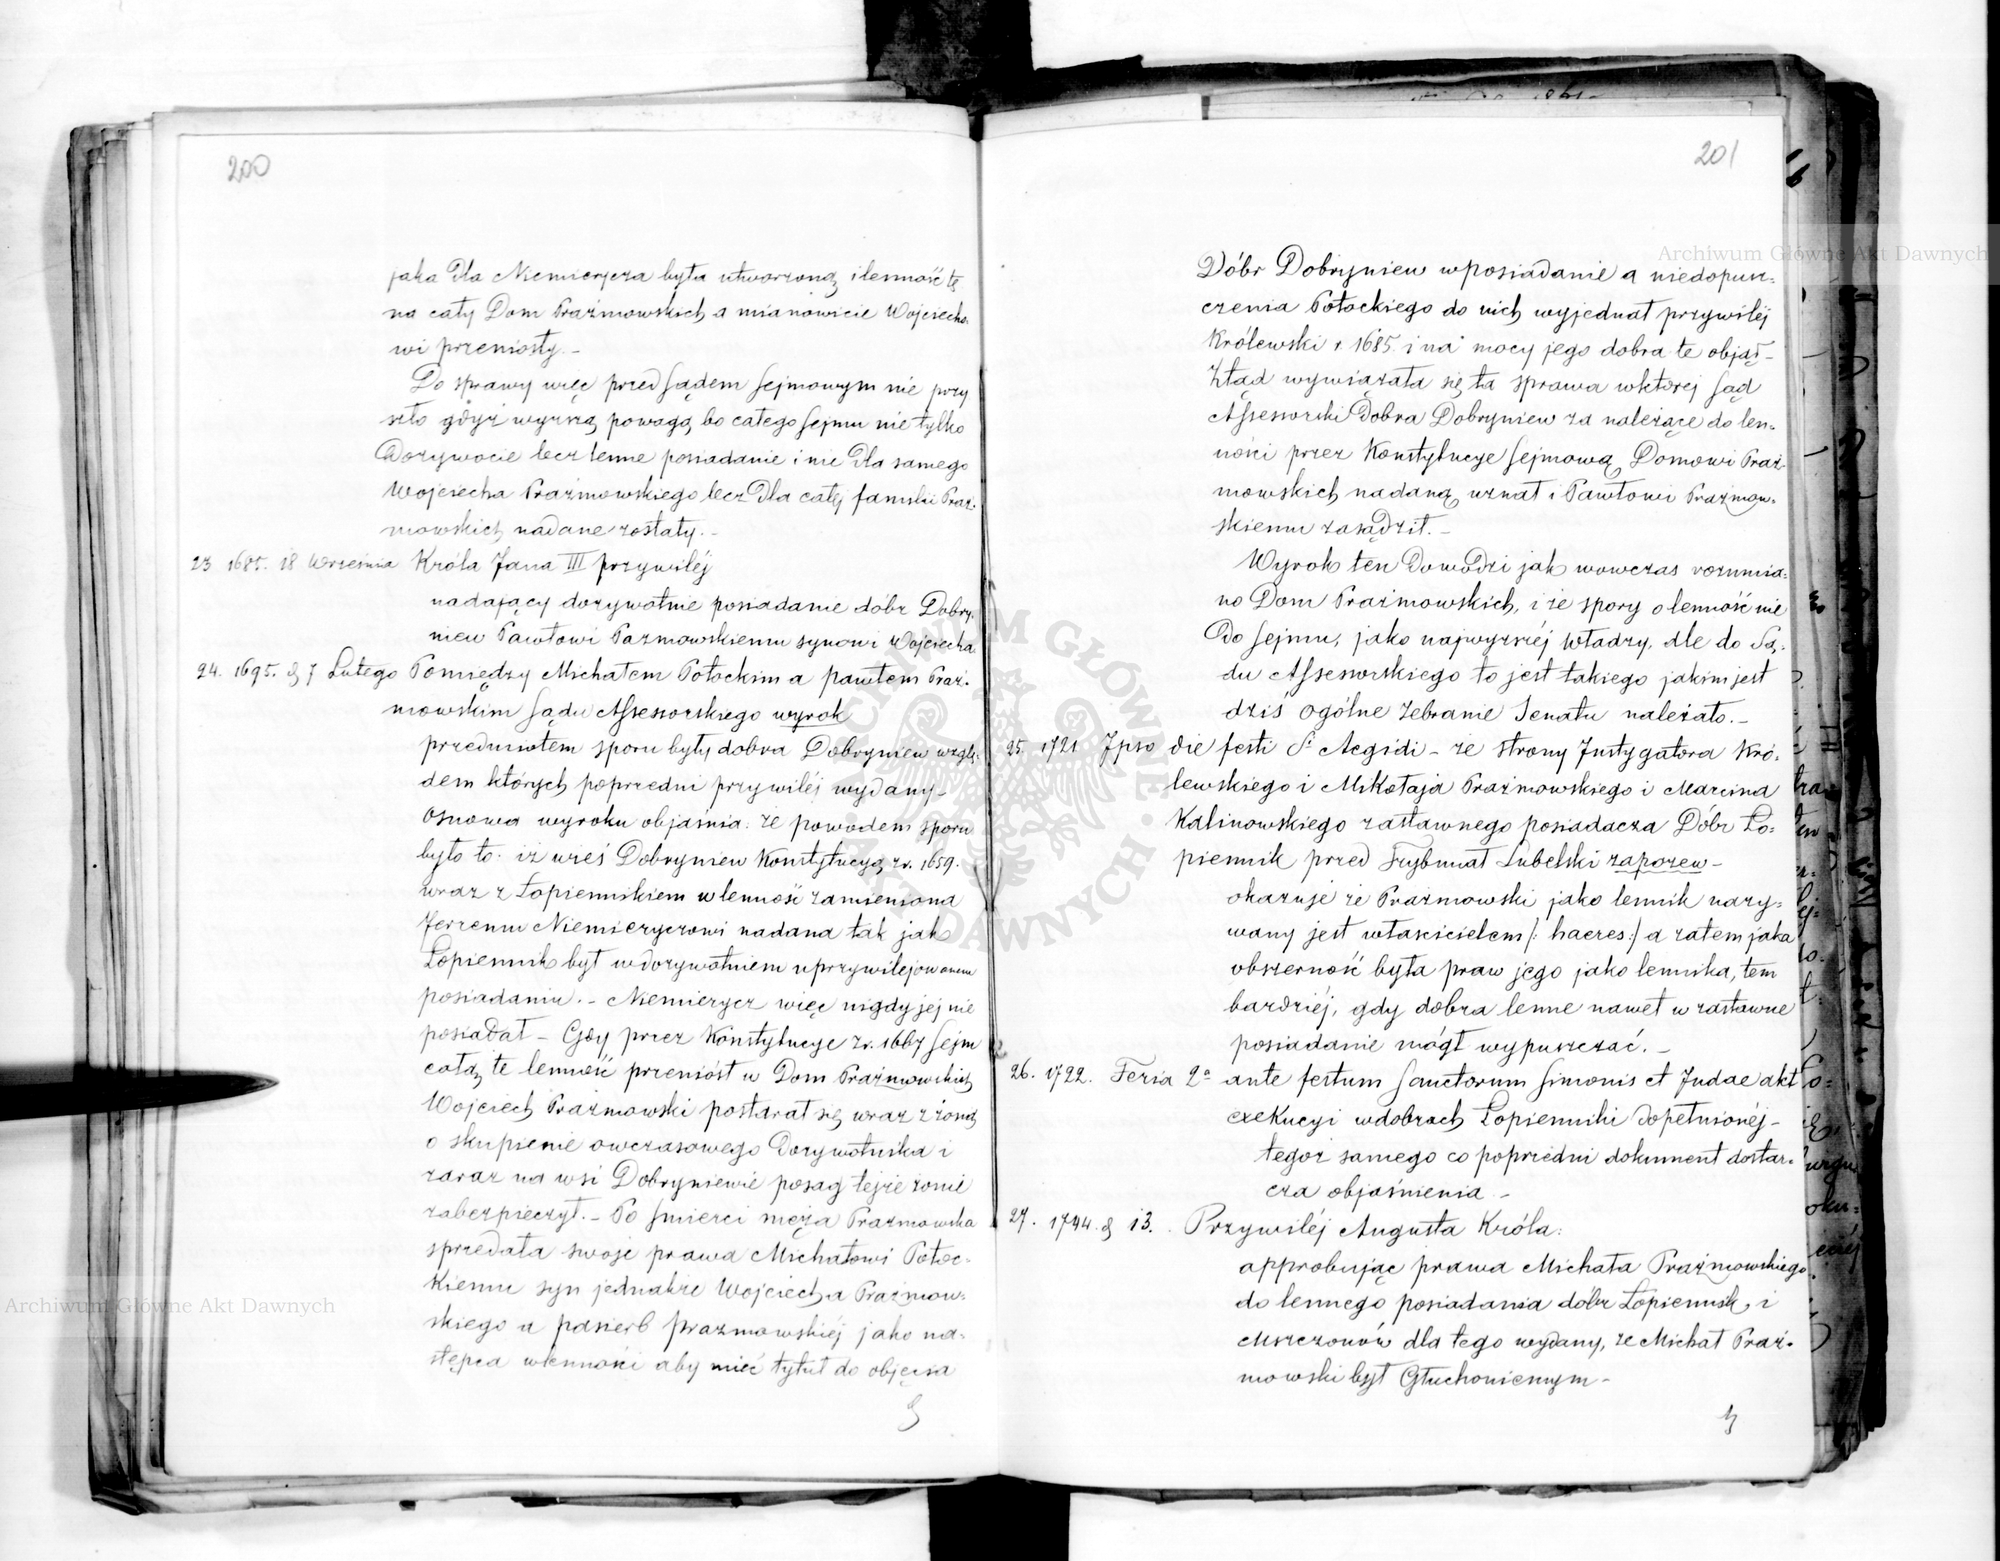 200
jaka dla Niemierycza była utworzoną i lenność tę
na cały Dom Prażmowskich a mianowicie Wojciecho-
wi przeniosły. –
Do sprawy więc przed Sądem Sejmowym nie przy
szło gdyż wyższą powagą bo całego Sejmu nie tylko
Dożywocie lecz lenne posiadanie i nie dla samego
Wojciecha Prażmowskiego lecz dla całej familii Praż-
mowskich nadane zostały. –
23 1685. 18 Września Króla Jana III przywiléj
nadający dożywotnie posiadanie dóbr Dobry-
niew Pawłowi Pazmowskiemu synowi Wojciecha
24. 1695. d 7 Lutego Pomiędzy Michałem Potockim a pawłem Praż-
mowskim Sądu Assessorskiego wyrok
przedmiotem sporu były dobra Dobryniew wzglę-
dem których poprzedni przywiléj wydany –
Osnowa wyroku objaśnia: że powodem sporu
było to: iż wieś Dobryniew Konstytucyą z r. 1659.
wraz z Łopiennikiem w lenność zamieniona
Jerzemu Niemieryczowi nadana tak jak
Łopiennik był w dożywotniem uprzywilejowanem
posiadaniu. – Niemierycz więc nigdy jej nie
posiadał – Gdy przez Konstytucye z r. 1667 Sejm
całą te lenność przeniósł w Dom Prażmowskich
Wojciech Prażmowski postarał się wraz z żoną
o skupienie owczasowego Dożywotnika i
zaraz na wsi Dobryniewie posag tejże żonie
zabezpieczył. – Po śmierci męża Prazmowska
sprzedała swoje prawa Michałowi Potoc-
kiemu syn jednakże Wojciecha Prażmow-
skiego a pasierb prazmowskiéj jako na-
stępca w lenności aby mieć tytuł do objęcia
201
Dóbr Dobryniew w posiadanie a niedopusz-
czenia Potockiego do nich wyjednał przywiléj
Królewski r. 1685. i na mocy jego dobra te objął –
Ztąd wywiązała się ta sprawa w której Sąd
Assessorski Dobra Dobryniew za należące do len-
ności przez Konstytucye Sejmową Domowi Praż-
mowskich nadaną uznał i Pawłowi Prażmow-
skiemu zasądził. –
Wyrok ten Dowodzi jak wowczas rozumia-
no Dom Prażmowskich, i że spory o lenność nie
do Sejmu, jako najwyższéj władzy, ale do Są-
du Assessorskiego to jest takiego jakim jest
dziś Ogólne Zebranie Senatu należało. –
25. 1721 Ipso die festi Sⁱ Aegidi – ze strony Instygatora Kró-
lewskiego i Mikołaja Prażmowskiego i Marcina
Kalinowskiego zastawnego posiadacza Dóbr Ło-
piennik przed Trybunał Lubelski zapozew –
okazuje że Prażmowski jako lennik nazy-
wany jest właścicielem /: haeres :/ a zatem jaka
obszerność była praw jego jako lennika, tem
bardziéj, gdy dobra lenne nawet w zastawne
posiadanie mógł wypuszczać. –
26. 1722. Feria 2ᵃ ante festum Sanctorum Simonis et Judae akt
exekucyi w dobrach Łopienniki dopełnionéj –
tegoż samego co poprzedni dokument dostar-
cza objaśnienia –
27. 1744. d 13. Przywiléj Augusta Króla:
approbując prawa Michała Prażmowskiego
do lennego posiadania dóbr Łopiennik, i
Mszczonów dla tego wydany, że Michał Praż-
mowski był Głuchoniemym –
Archiwum Główne Akt Dawnych
Archiwum Główne Akt Dawnych
ARCHIWUM GŁÓWNE · AKT DAWNYCH ·